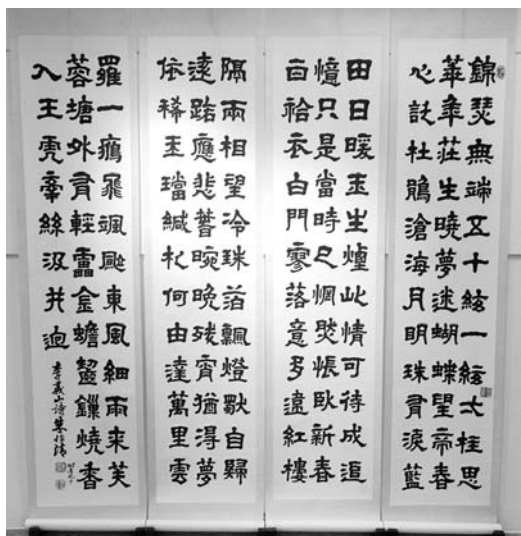 錦瑟無端五十絃一絃弌柱思
華年莊生曉夢迷蝴蝶望帝春
心託杜鵑滄海月明珠有淚藍
田日暖玉生煙此情可待成追
憶只是當時已惘然悵臥新春
白袷衣白門寥落意多遠紅樓
隔雨相望冷珠箔飄燈獨自歸
遠路應悲春晼晚殘宵猶得夢
依稀玉璫緘札何由達萬里雲
羅一鴈飛颯颯東風細雨來芙
蓉塘外有輕靁金蟾齧鏁燒香
入玉虎牽絲汲井迴
李義山詩